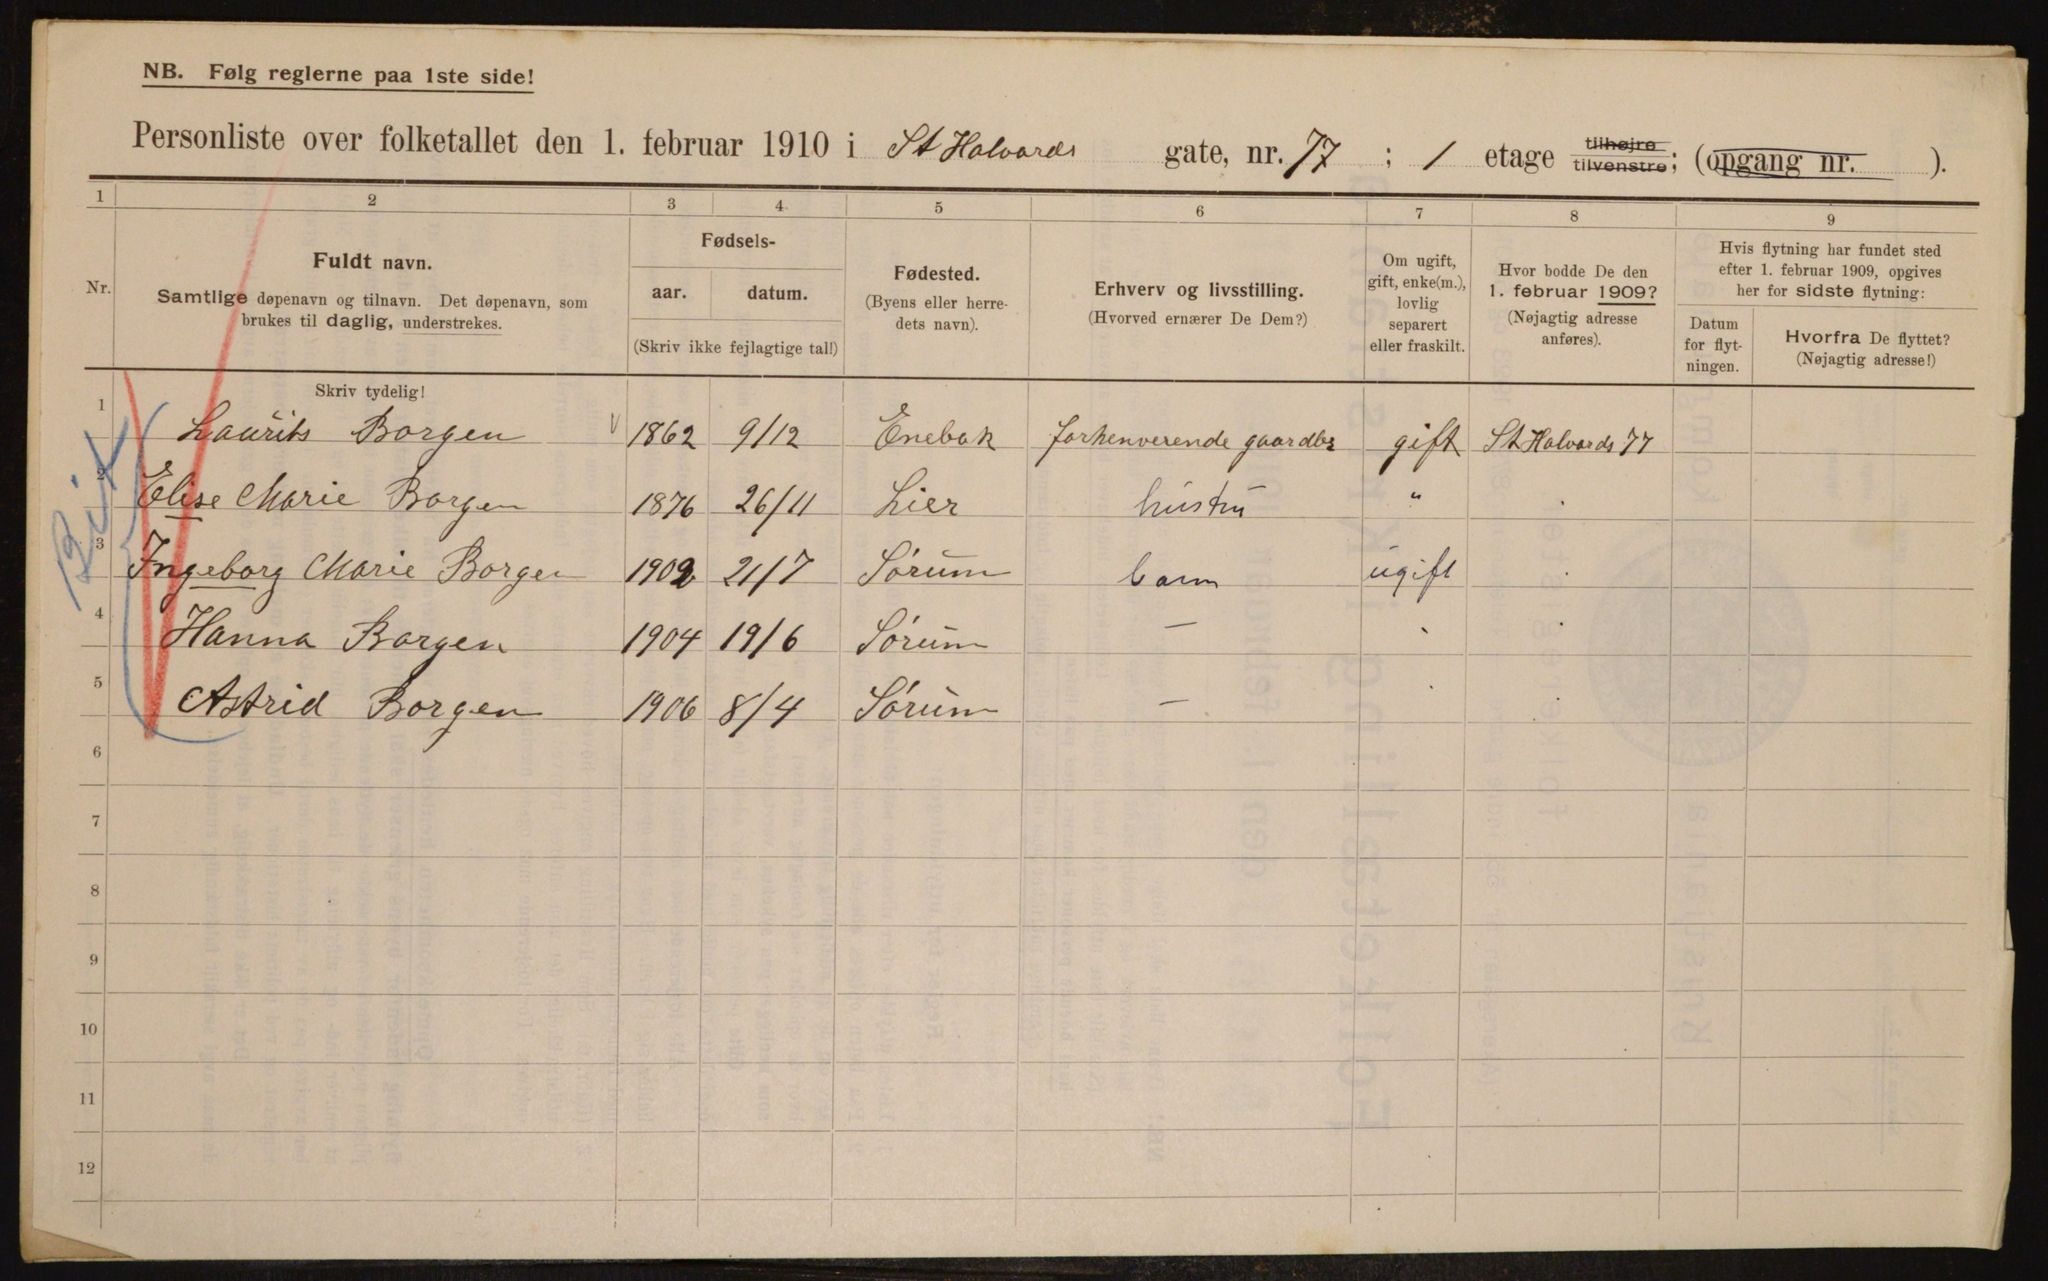 NB. Følg reglerne paa 1ste side!
Personliste over folketallet den 1. februar 1910 i St Halvards gate, nr. 77 ; 1 etage tilhøjre tilvenstre; (opgang nr. ).
1 2 3 4 5 6 7 8 9
Nr.
Fuldt navn.
Samtlige døpenavn og tilnavn. Det døpenavn, som
brukes til daglig, understrekes.
Fødsels-
aar. datum.
(Skriv ikke fejlagtige tal!)
Fødested.
(Byens eller herre-
dets navn).
Erhverv og livsstilling.
(Hvorved ernærer De Dem?)
Om ugift,
gift, enke(m.),
lovlig
separert
eller fraskilt.
Hvor bodde De den
1. februar 1909?
(Nøjagtig adresse
anføres).
Hvis flytning har fundet sted
efter 1. februar 1909, opgives
her for sidste flytning:
Datum
for flyt-
ningen.
Hvorfra De flyttet?
(Nøjagtig adresse!)
Skriv tydelig!
1 Laurits Borgen 1862 9/12 Enebak forhenverende gaardbr gift St Halvards 77
2 Elise Marie Borgen 1876 26/11 Lier hustru "
3 Ingeborg Marie Borgen 1902 21/7 Sørum barn ugift
4 Hanna Borgen 1904 19/6 Sørum —
5 Astrid Borgen 1906 8/4 Sørum —
6
7
8
9
10
11
12